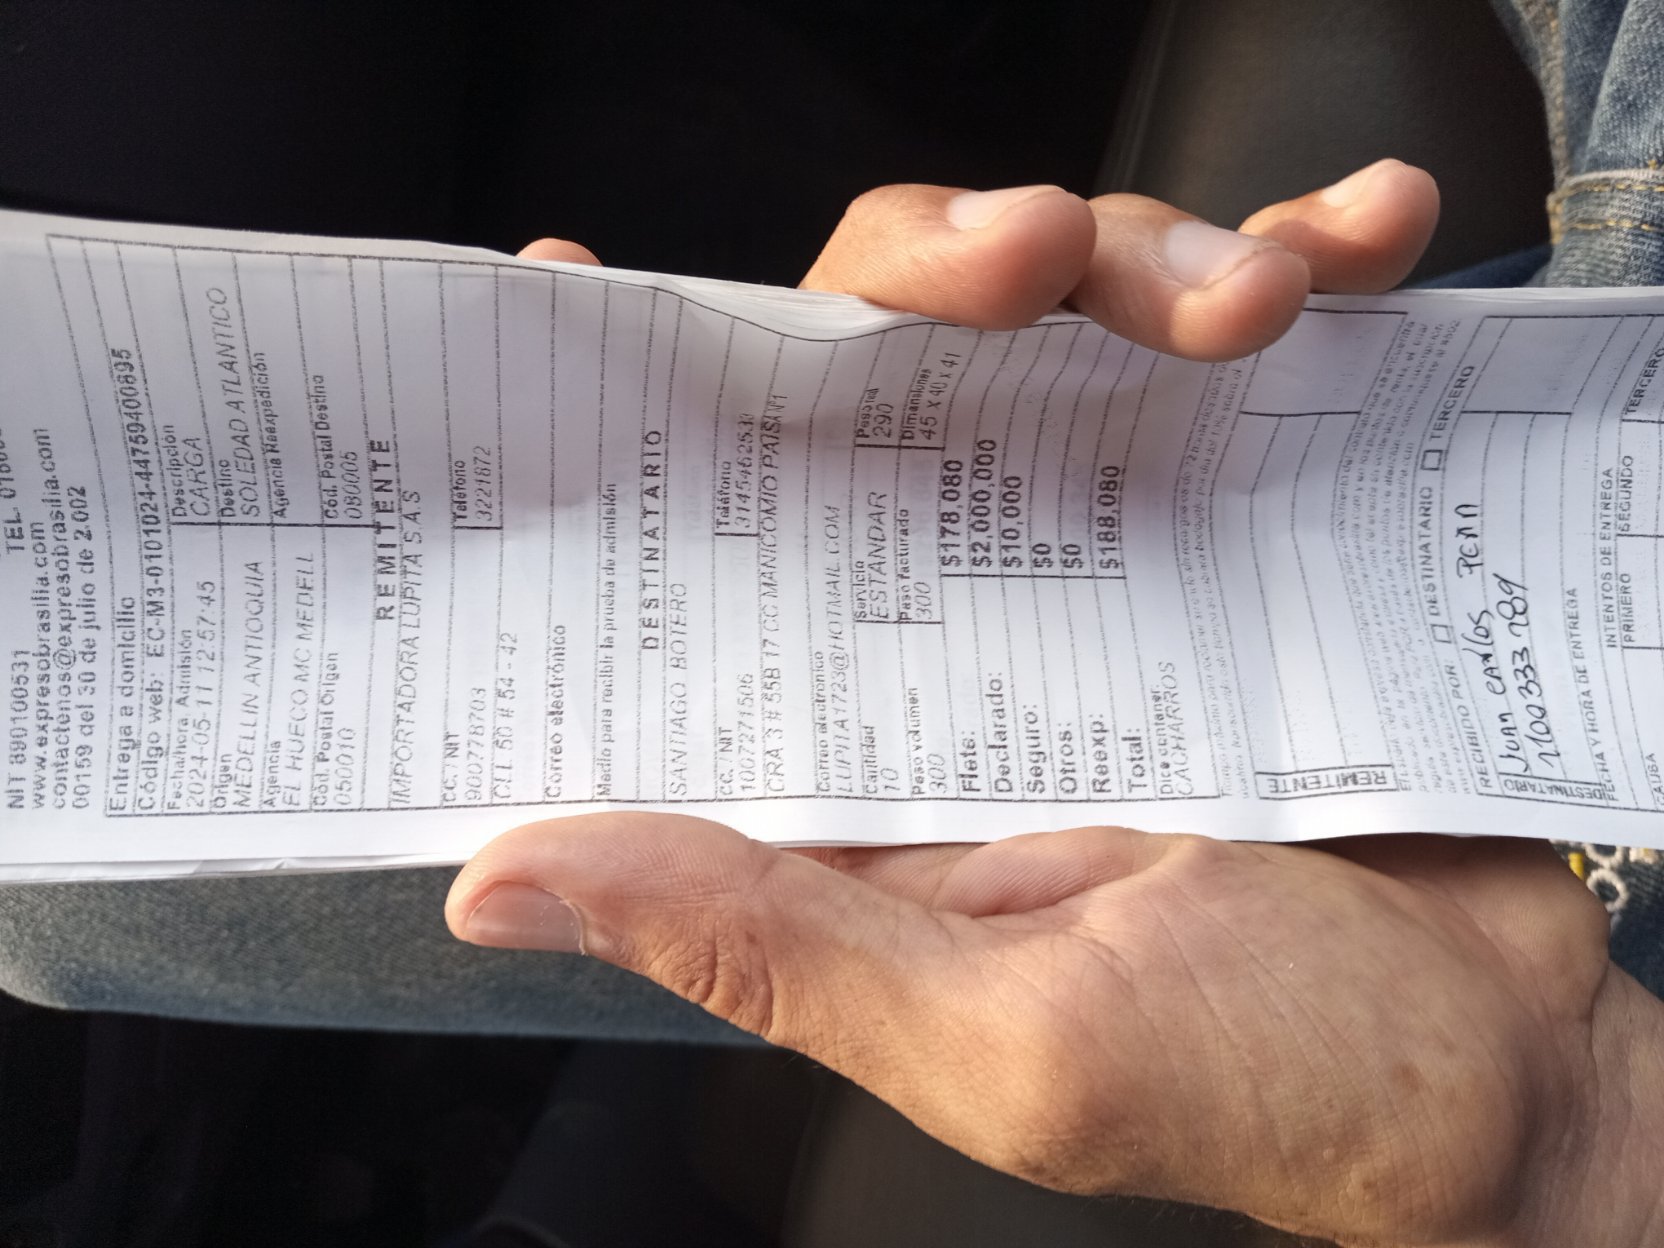 NIT 890100531 TEL.
www.expresobrasilia.com
contactenos@expresobrasilia.com
00159 del 30 de julio de 2.002
Entrega a domicilio
Código web: EC-M3-0101024-44759400695
Fecha/hora Admisión Descripción
2024-05-11 12:57:45 CARGA
Origen Destino
MEDELLIN ANTIOQUIA SOLEDAD ATLANTICO
Agencia Agencia Reexpedición
EL HUECO MC MEDELL
Cód. Postal Origen Cód. Postal Destino
050010 080005
REMITENTE
IMPORTADORA LUPITA S.A.S
CC. / NIT Teléfono
900778703 3221872
CLL 50 # 54 - 42
Correo electrónico
Medio para recibir la prueba de admisión
DESTINATARIO
SANTIAGO BOTERO
CC. / NIT Teléfono
1007271506
CRA 3 # 55B 17 CC MANICOMIO PAISA
Correo electrónico
LUPITA1723@HOTMAIL.COM
Cantidad Servicio Peso real
10 ESTANDAR 290
Peso volumen Peso facturado Dimensiones
300 300 45 X 40 X 41
Flete: $178,080
Declarado: $2,000,000
Seguro: $10,000
Otros: $0
Reexp: $0
Total: $188,080
Dice contener:
CACHARROS
REMITENTE
RECIBIDO POR: DESTINATARIO TERCERO
Juan Carlos Pena
1100333289
DESTINATARIO
FECHA Y HORA DE ENTREGA
INTENTOS DE ENTREGA
PRIMERO SEGUNDO TERCERO
CAUSA